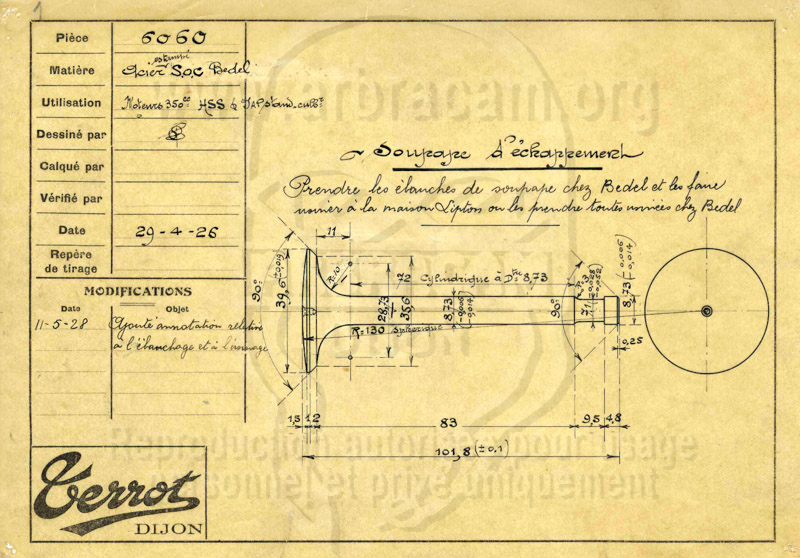 1
Pièce 6060
Matière Acier estampé S.O.C Bedel
Utilisation Moteurs 350cc HSS &
Dessiné par
Calqué par
Vérifié par
Date 29-4-26
Repère
de tirage
MODIFICATIONS
Date Objet
11-5-28 Ajouté annotation relative
à l'ébauchage et à l'usinage
Soupape d'échappement
Prendre les ébauches de soupape chez Bedel et les faire
usiner à la maison Lipton ou les prendre toutes usinées chez Bedel
11
90°
39,6 (±0,015)
R=10
72
Cylindrique à Dre 8,73
28,73
35,6
8,73 (-0,006 -0,014)
R=130 sphérique
90°
R=3
7,1 (-0,028 -0,052)
8,73 (-0,006 -0,014)
0,25
1,5
12
83
9,5
4,8
101,8 (±0,1)
www.arbracam.org
Reproduction autorisée pour usage
personnel et privé uniquement
Terrot
DIJON